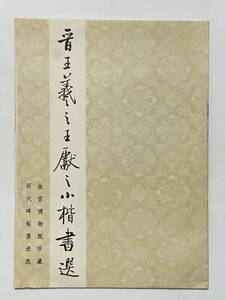 晋王羲之王献之小楷書選
故宫博物院珍藏
历代碑帖墨迹选